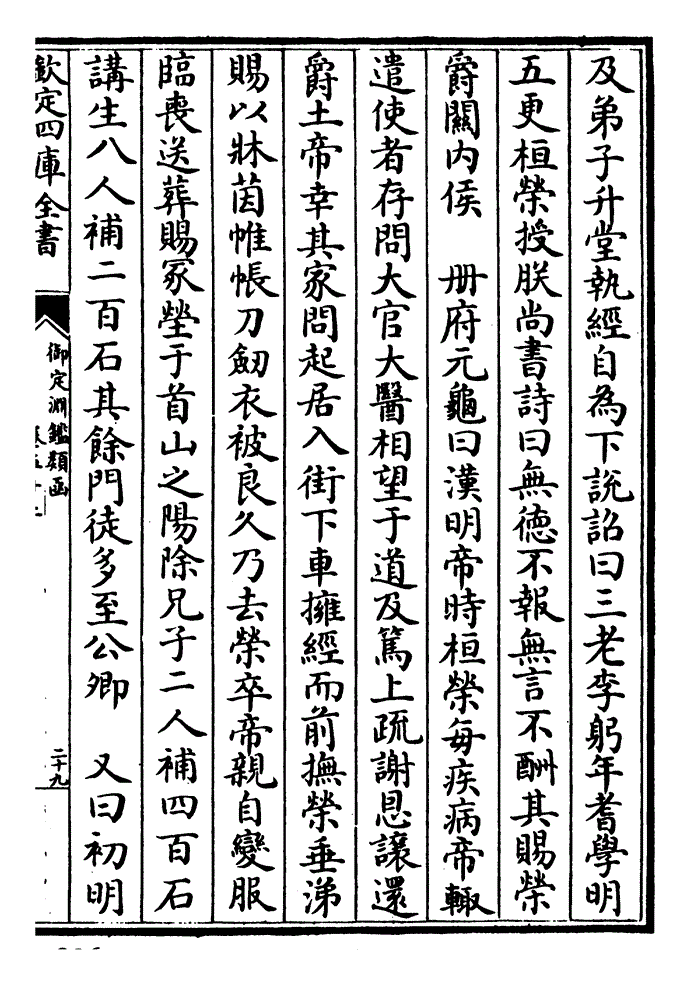 及弟子升堂執經自為下說詔曰三老李躬年耆學明
五更桓榮授朕尚書詩曰無德不報無言不酬其賜榮
爵關內侯　冊府元龜曰漢明帝時桓榮每疾病帝輙
遣使者存問大官大醫相望于道及篤上疏謝恩讓還
爵土帝幸其家問起居入街下車擁經而前撫榮垂涕
賜以牀茵帷帳刀劒衣被良久乃去榮卒帝親自變服
臨喪送葬賜冢塋于首山之陽除兄子二人補四百石
講生八人補二百石其餘門徒多至公卿　又曰初明
欽定四庫全書
御定淵鑑類函
二十九